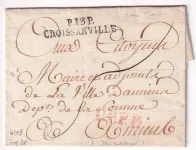 P.13.P.
CROISSANVILLE
Aux Citoyens
Maire et adjoints
de La Ville Damiens
Dept de la Somme
Amiens